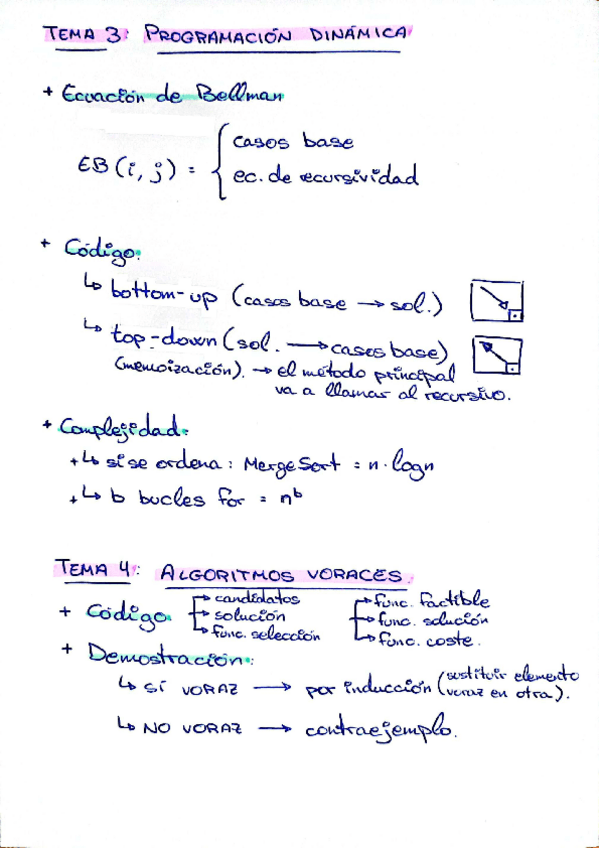 TEMA 3: PROGRAMACIÓN DINÁMICA
+ Ecuación de Bellman
EB(i, j) = { casos base
ec. de recursividad
+ Código:
↳ bottom-up (casos base → sol.)
↳ top-down (sol. → casos base)
(memoización). → el método principal
va a llamar al recursivo.
+ Complejidad:
+ ↳ si se ordena: MergeSort = n·logn
+ ↳ b bucles for = n^b
TEMA 4: ALGORITMOS VORACES.
+ Código: → candidatos → func. factible
→ solución → func. solución
→ func. selección → func. coste.
+ Demostración:
↳ SÍ VORAZ → por inducción (sustituir elemento
voraz en otra).
↳ NO VORAZ → contraejemplo.